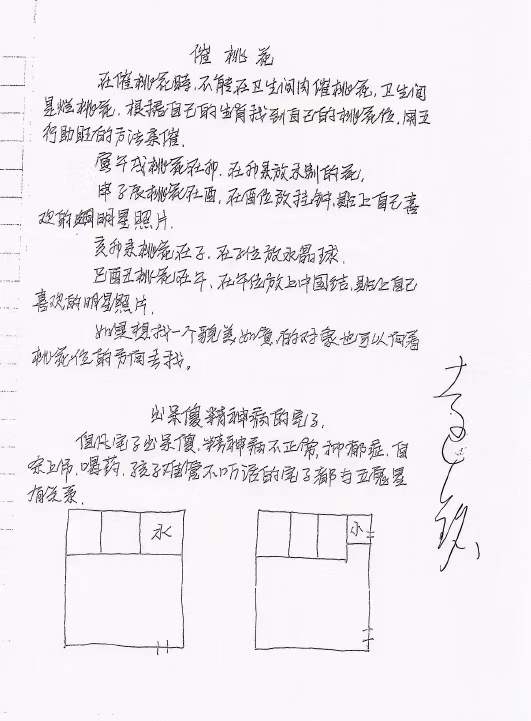 催桃花
在催桃花时,不能在卫生间内催桃花,卫生间
是烂桃花,根据自己的生肖找到自己的桃花位,用五
行助旺的方法来催.
寅午戌桃花在卯,在卯泉放永别的花,
申子辰桃花在酉,在酉位放挂钟,贴上自己喜
欢的明星照片.
亥卯未桃花在子,在子位放水晶球.
巳酉丑桃花在午,在午位放上中国结,贴上自己
喜欢的明星照片.
如果想找一个貌美如 的对象也可以向着
桃花位的方向去找。
出呆傻精神病的宅子.
但凡宅子出呆傻,精神病不正常,抑郁症,自
杀上吊,喝药,孩子难管不听话的宅子都与五鬼星
有关系.
水
小